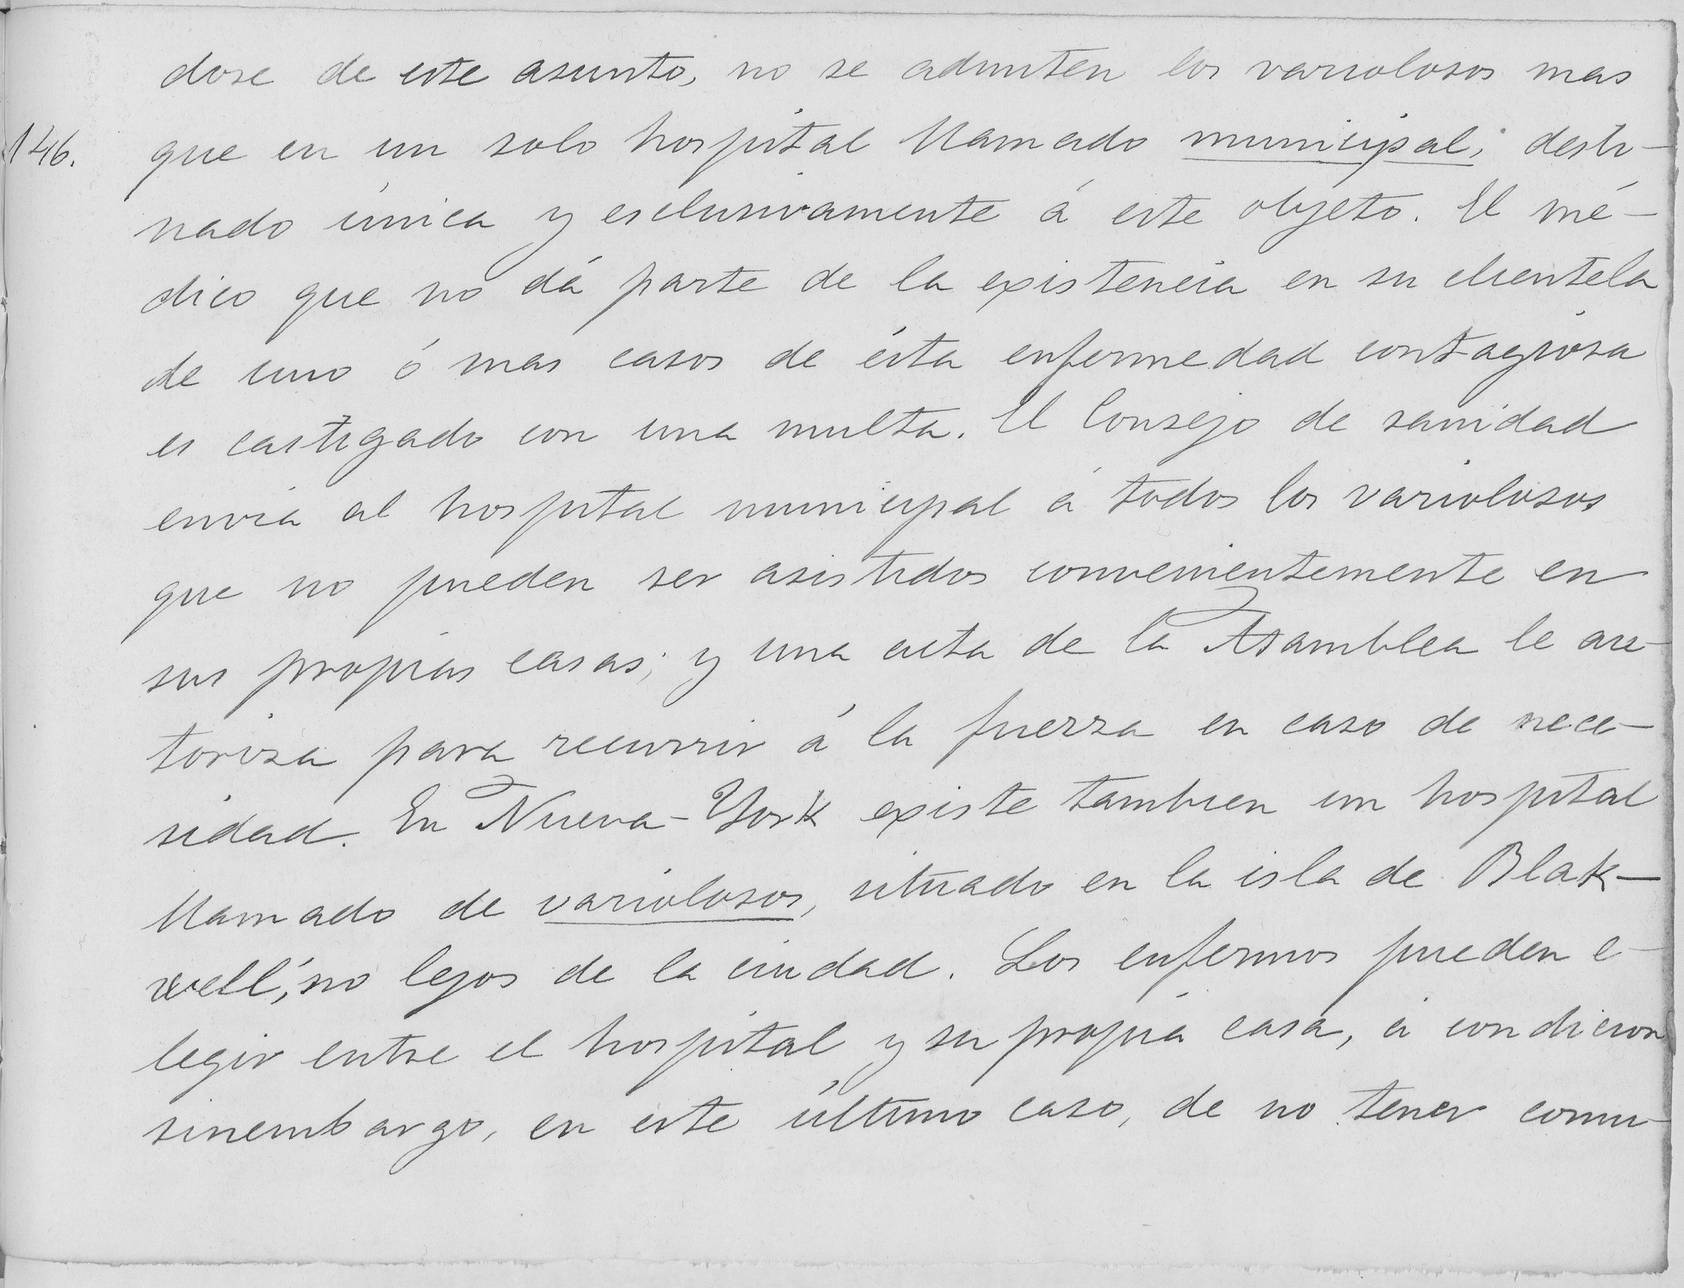 dose de este asunto, no se admiten los variolosos mas
146. que en un solo hospital llamado municipal; desti-
nado única y esclusivamente á este objeto. El mé-
dico que no dá parte de la existencia en su clientela
de uno ó mas casos de ésta enfermedad contagiosa
es castigado con una multa. El Consejo de sanidad
envia al hospital municipal á todos los variolosos
que no pueden ser asistidos convenientemente en
sus propias casas; y una acta de la Asamblea le au-
toriza para recurrir á la fuerza en caso de nece-
sidad. En Nueva-York existe tambien un hospital
llamado de variolosos, situado en la isla de Blak-
well, no lejos de la ciudad. Los enfermos pueden e-
legir entre el hospital y su propia casa, á condicion
sinembargo, en este último caso, de no tener comu-